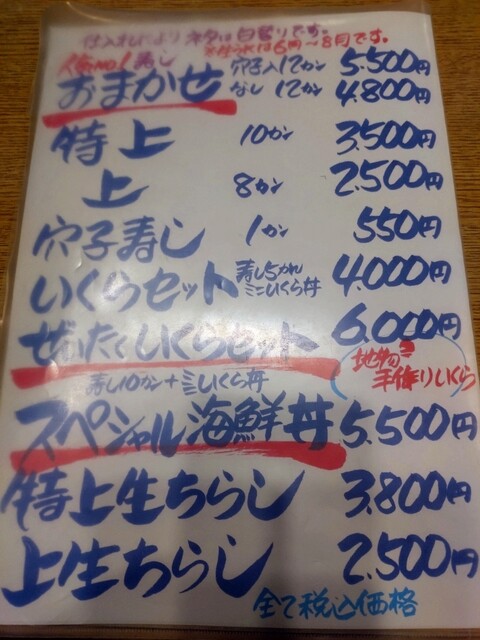 仕入れにより ネタは日替りです。
※生うには6月〜8月です。
人気NO1 寿し
おまかせ 穴子入12カン 5.500円
なし 12カン 4.800円
特上 10カン 3.500円
上 8カン 2.500円
穴子寿し 1カン 550円
いくらセット 寿し5カン ミニいくら丼 4.000円
ぜいたくいくらセット 6.000円
寿し10カン+ミニいくら丼
地物 手作りいくら
スペシャル海鮮丼 5.500円
特上生ちらし 3.800円
上生ちらし 2.500円
全て税込価格